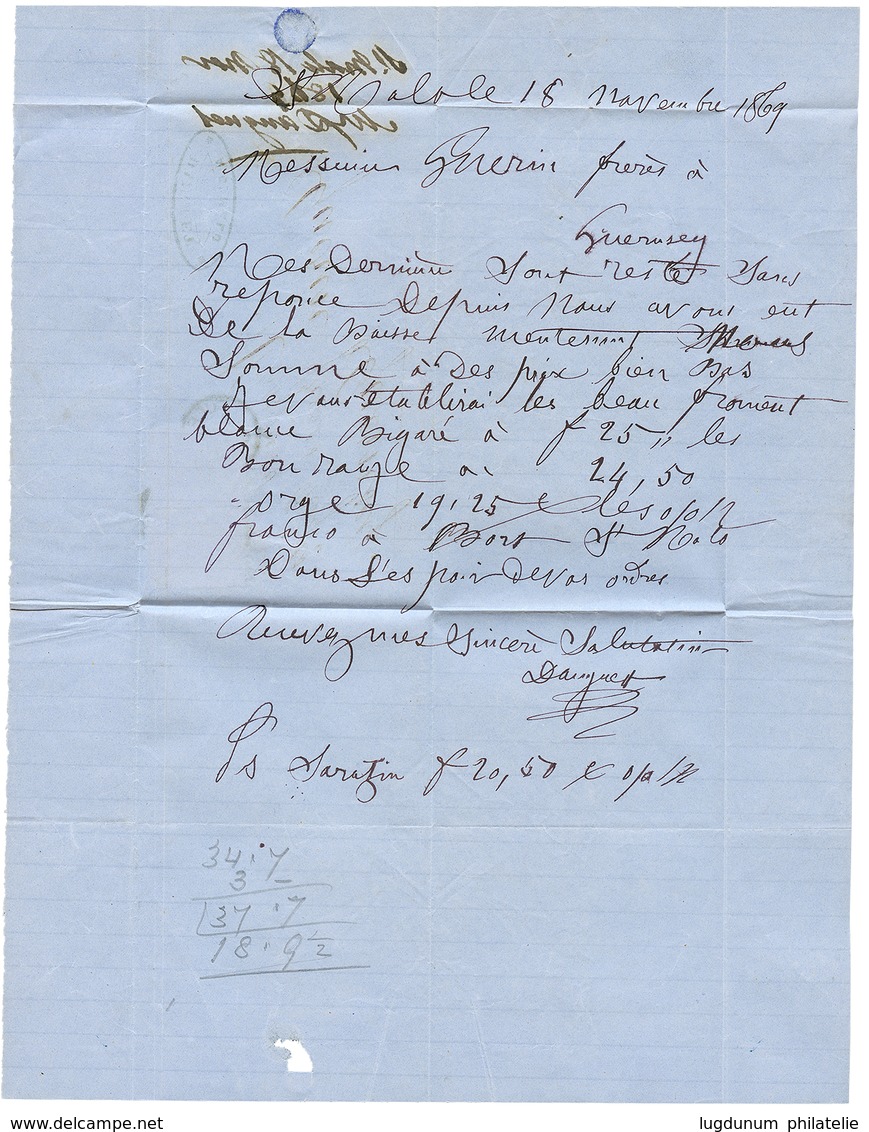 St Malo le 18 Novembre 1869
Messieurs Guerin freres à
Guernsey
Mes Dernière Sont restés Sans
reponce Depuis Nous avons eut
De la Baisse mentenent
Somme à Des prix bien Bas
Je vous établirai les beau froment
blanc Bigaré à f 25 " les
Bon rouge à 24,50
orge 19,25 les o/o K
franco à Bort St Malo
Dans L'es poir De vos ordres
Recevez mes Sincere Salutation
Danguet
Ps Sarazin f 20,50 o/o K
34.7
3 -
37.7
18.9½
www.delcampe.net
lugdunum philatelie